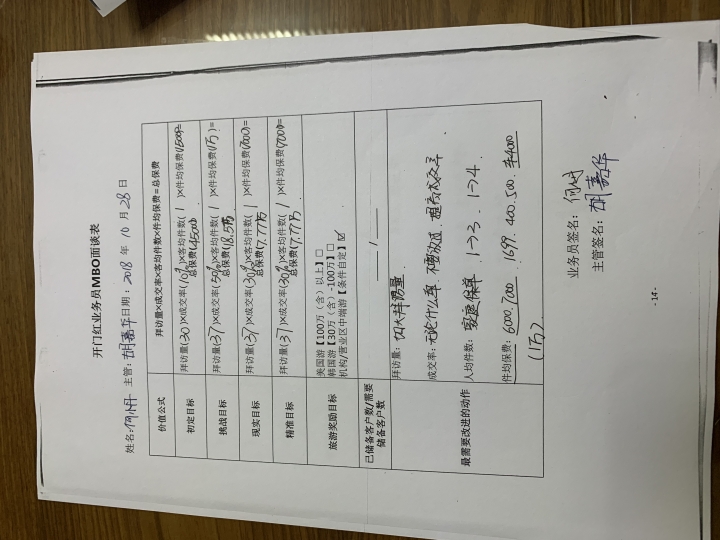 开门红业务员MBO面谈表
姓名: 主管: 胡嘉华 日期: 2018 年 10 月 28 日
价值公式 拜访量×成交率×客均件数×件均保费=总保费
初定目标 拜访量(30)×成交率(10%)×客均件数( 1 )×件均保费(1500)=
总保费(4500)
挑战目标 拜访量(37)×成交率(50%)×客均件数( 1 )×件均保费(1万)=
总保费(18.5万)
现实目标 拜访量(37)×成交率(30%)×客均件数( 1 )×件均保费(7000)=
总保费(7.77万)
精准目标 拜访量(37)×成交率(30%)×客均件数( 1 )×件均保费(7000)=
总保费(7.77万)
旅游奖励目标 美国游【100万（含）以上】□
韩国游【30万（含）-100万】□
机构/营业区中端游【条件自定】☑
已储备客户数/需要储备客户数 /
最需要改进的动作
拜访量: 加大拜访量.
成交率: 无论什么单, 不要放过. 提高成交率
人均件数: 家庭保单. 1→3. 1→4.
件均保费: 6000.7000. 1699. 400.500. 4000
(1万)
业务员签名:
主管签名: 胡嘉华
- 14 -